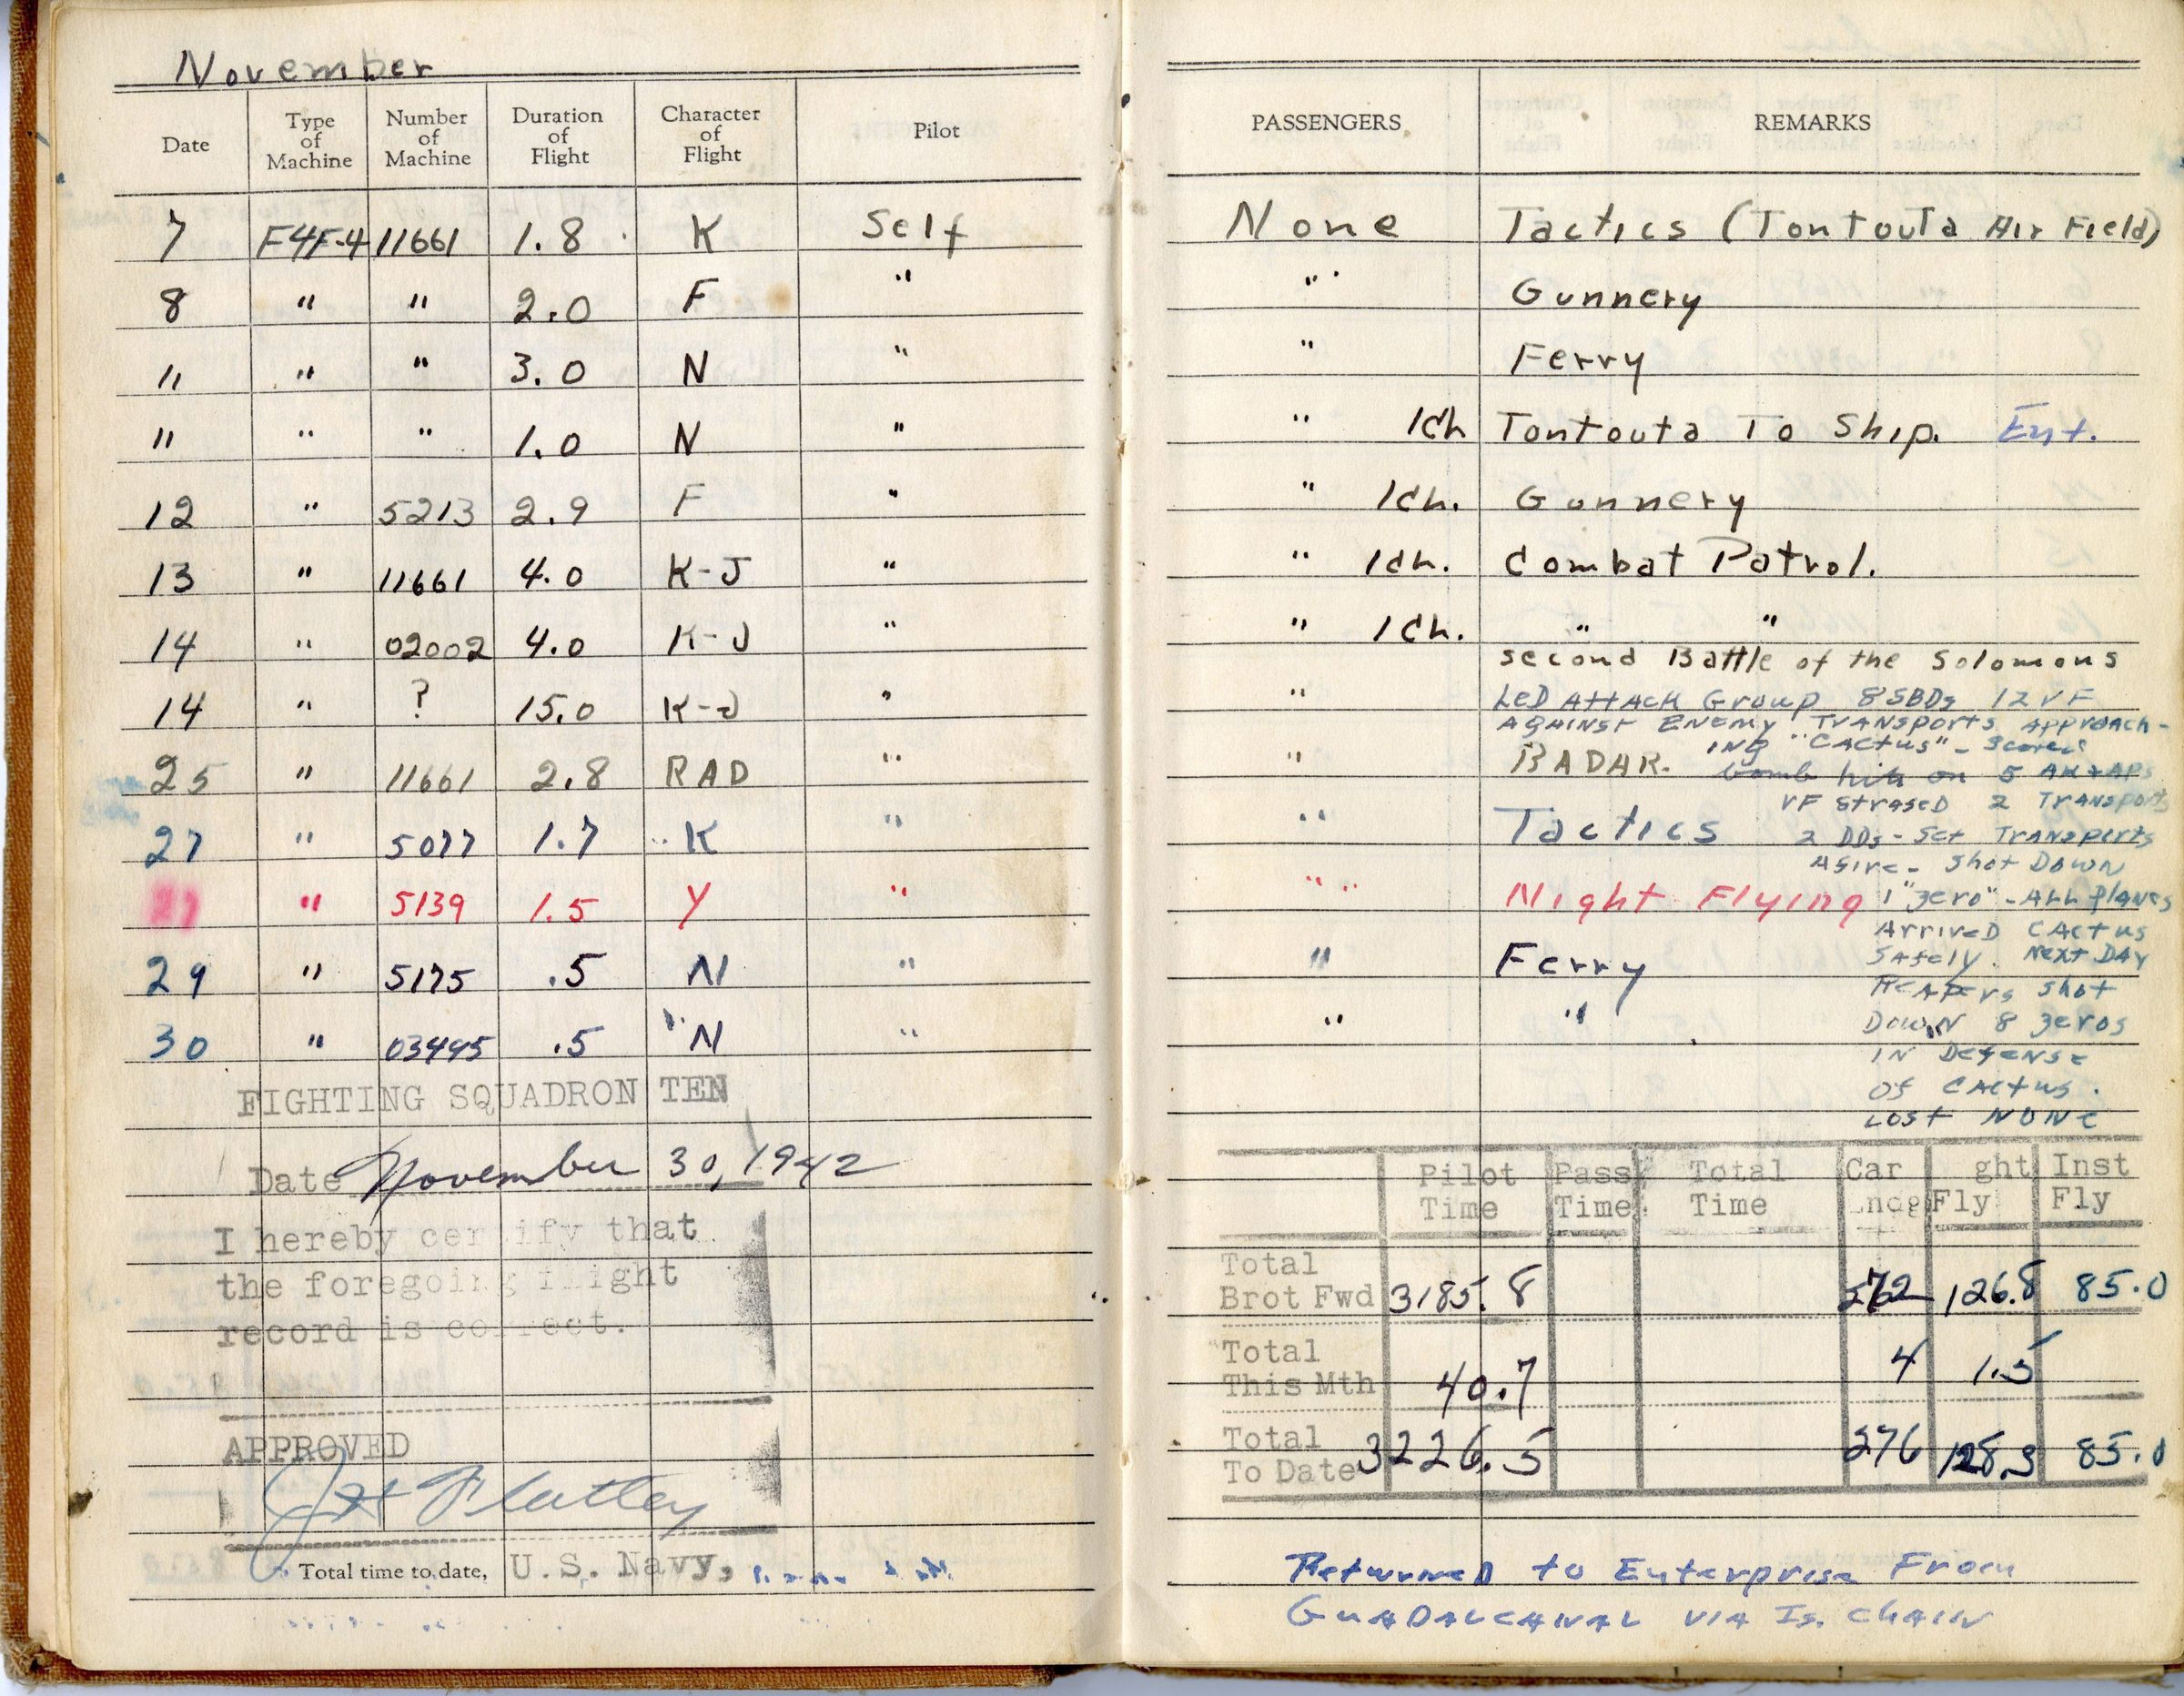 November
Date Type of Machine Number of Machine Duration of Flight Character of Flight Pilot PASSENGERS REMARKS
7 F4F-4 11661 1.8 K Self None Tactics (Tontouta Air Field)
8 " " 2.0 F " " Gunnery
" " " 3.0 N " " Ferry
" " " 1.0 N " " 1ch Tontouta To Ship. Ent.
12 " 5213 2.9 F " " 1ch. Gunnery
13 " 11661 4.0 K-J " " 1ch. Combat Patrol.
14 " 02002 4.0 K-J " " 1ch. " "
second Battle of the Solomons
14 " ? 15.0 K-J " " LED AttAcK Group 8 SBDs 12 VF
AGAINST ENEMY TRANSPORTS APPROACH-
ING "CACtus" - Scored
25 " 11661 2.8 RAD " " RADAR. bomb hits on 5 AK + APs
VF StrafeD 2 TRANSPORTS
27 " 5077 1.7 K " " Tactics 2 DDs - Set TRANSPORTS
Afire - Shot DOWN
27 " 5139 1.5 Y " " " Night Flying 1 "Zero" - ALL PlANes
ArriveD CACtus
29 " 5175 .5 N " " Ferry SAfely. Next DAY
REAPErs Shot
30 " 03495 .5 N " " " DOWN 8 Zeros
IN DefeNSe
Of CACtus.
LOSt NONe
FIGHTING SQUADRON TEN
Date November 30, 1942
I hereby certify that
the foregoing flight
record is correct.
APPROVED
J H Flatley
Total time to date, U.S. Navy,
Pilot Time Pass Time Total Time Car Lndg ght Fly Inst Fly
Total Brot Fwd 3185.8 272 126.8 85.0
Total This Mth 40.7 4 1.5
Total To Date 3226.5 276 128.3 85.0
ReturneD to Enterprise From
GUADALCANAL VIA Is. CHAIN